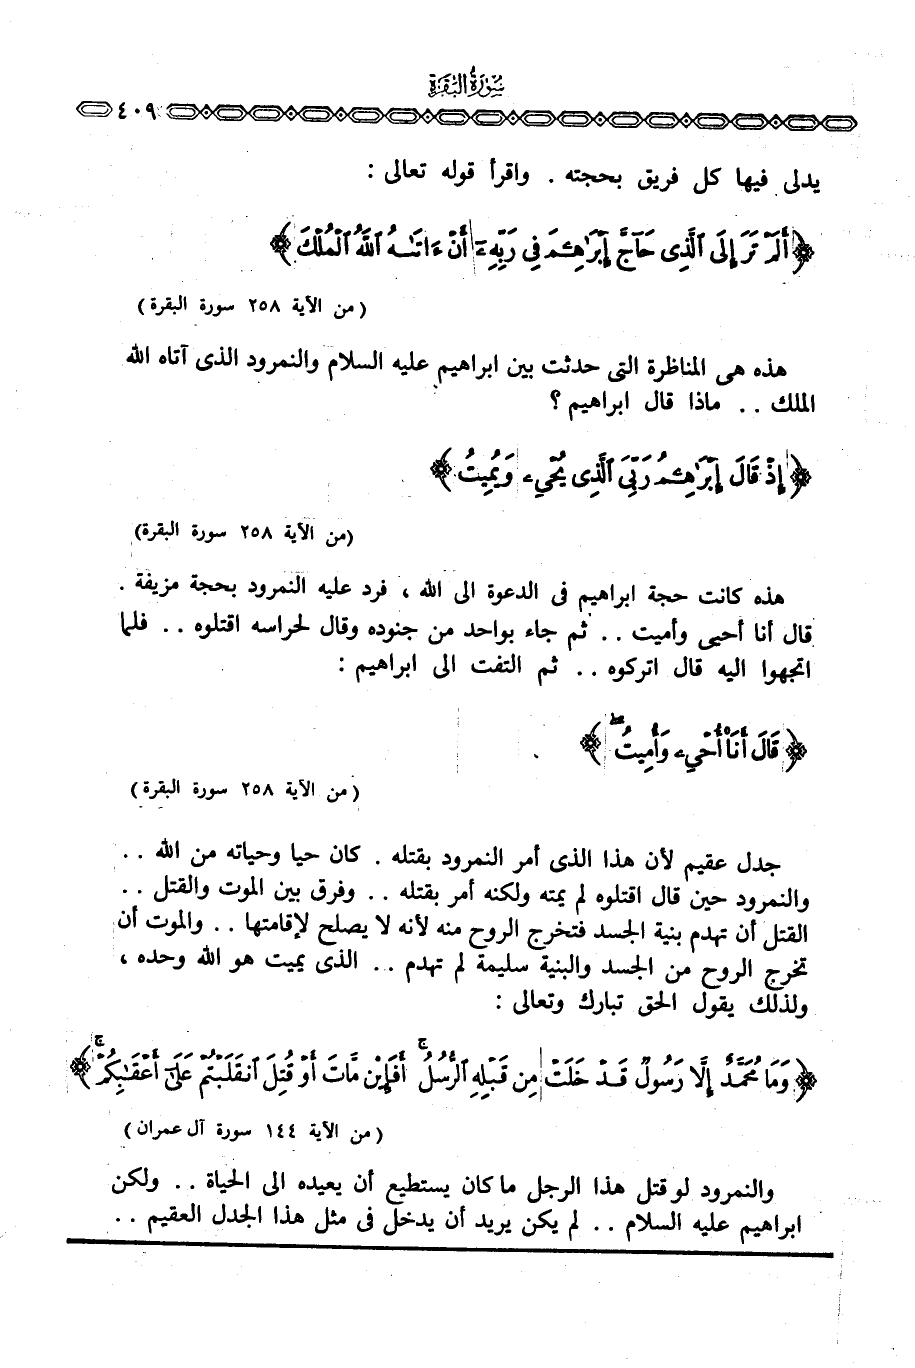 سُورَةُ البَقَرَةِ
٤٠٩
يدلى فيها كل فريق بحجته . واقرأ قوله تعالى :
﴿ أَلَمْ تَرَ إِلَى ٱلَّذِى حَآجَّ إِبْرَٰهِـۧمَ فِى رَبِّهِۦٓ أَنْ ءَاتَىٰهُ ٱللَّهُ ٱلْمُلْكَ ﴾
( من الآية ٢٥٨ سورة البقرة )
هذه هى المناظرة التى حدثت بين ابراهيم عليه السلام والنمرود الذى آتاه الله
الملك .. ماذا قال ابراهيم ؟
﴿ إِذْ قَالَ إِبْرَٰهِـۧمُ رَبِّىَ ٱلَّذِى يُحْىِۦ وَيُمِيتُ ﴾
(من الآية ٢٥٨ سورة البقرة)
هذه كانت حجة ابراهيم فى الدعوة الى الله ، فرد عليه النمرود بحجة مزيفة .
قال أنا أحيى وأميت .. ثم جاء بواحد من جنوده وقال لحراسه اقتلوه .. فلما
اتجهوا اليه قال اتركوه .. ثم التفت الى ابراهيم :
﴿ قَالَ أَنَا۠ أُحْىِۦ وَأُمِيتُ ۖ ﴾
( من الآية ٢٥٨ سورة البقرة )
جدل عقيم لأن هذا الذى أمر النمرود بقتله . كان حيا وحياته من الله ..
والنمرود حين قال اقتلوه لم يمته ولكنه أمر بقتله .. وفرق بين الموت والقتل ..
القتل أن تهدم بنية الجسد فتخرج الروح منه لأنه لا يصلح لإقامتها .. والموت أن
تخرج الروح من الجسد والبنية سليمة لم تهدم .. الذى يميت هو الله وحده ،
ولذلك يقول الحق تبارك وتعالى :
﴿ وَمَا مُحَمَّدٌ إِلَّا رَسُولٌ قَدْ خَلَتْ مِن قَبْلِهِ ٱلرُّسُلُ ۚ أَفَإِيْن مَّاتَ أَوْ قُتِلَ ٱنقَلَبْتُمْ عَلَىٰٓ أَعْقَٰبِكُمْ ۚ ﴾
( من الآية ١٤٤ سورة آل عمران )
والنمرود لو قتل هذا الرجل ما كان يستطيع أن يعيده الى الحياة .. ولكن
ابراهيم عليه السلام .. لم يكن يريد أن يدخل فى مثل هذا الجدل العقيم ..